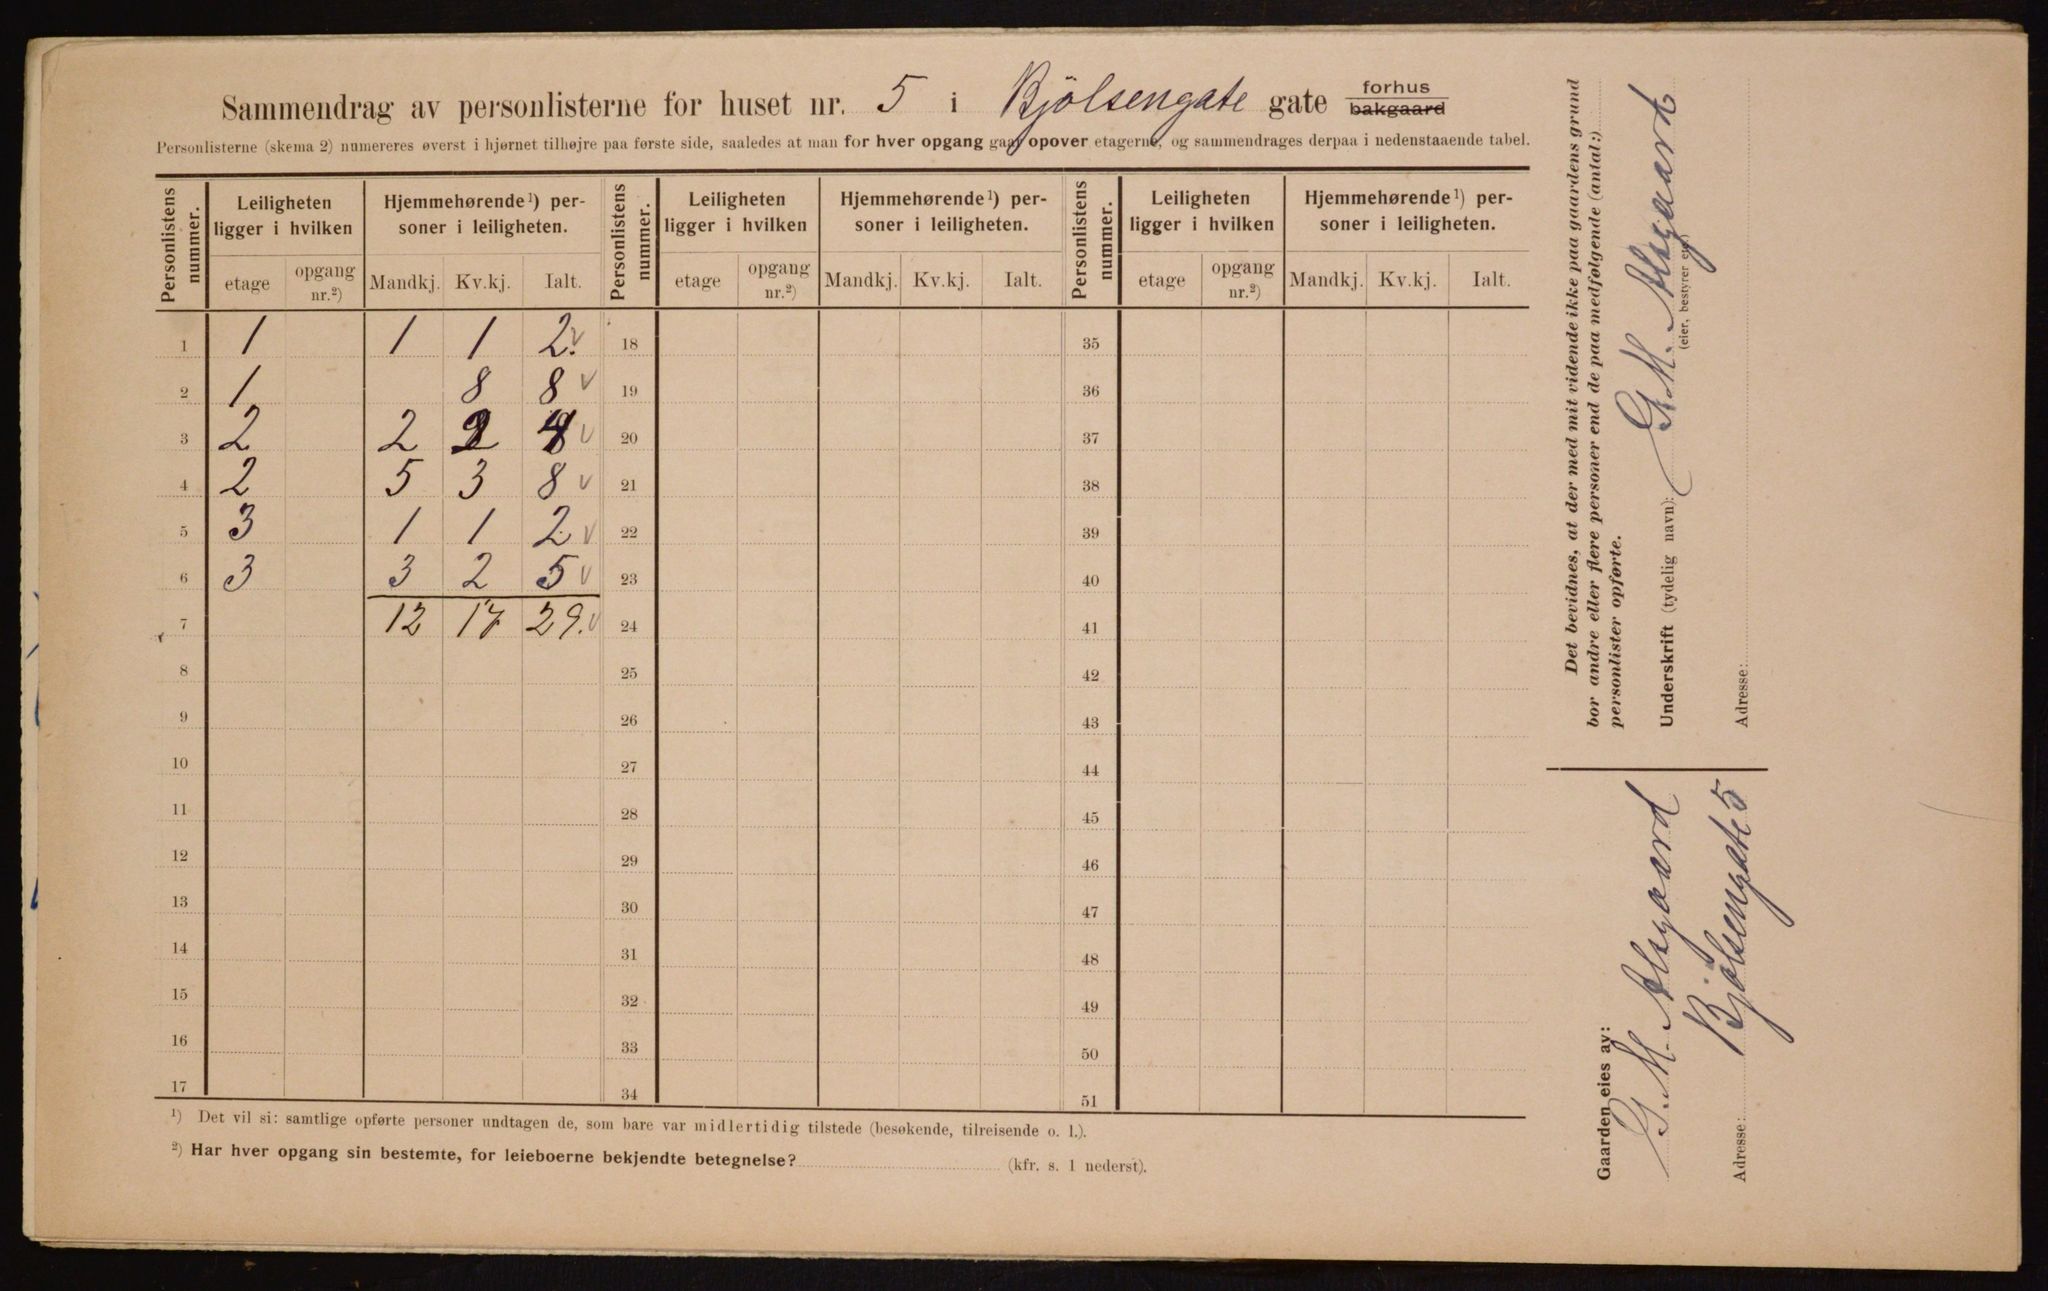 Sammendrag av personlisterne for huset nr. 5 i Bjölsengate gate forhus bakgaard
Personlisterne (skema 2) numereres øverst i hjørnet tilhøjre paa første side, saaledes at man for hver opgang gaar opover etagerne, og sammendrages derpaa i nedenstaaende tabel.
Personlistens nummer. Leiligheten ligger i hvilken Hjemmehørende¹) personer i leiligheten. Personlistens nummer. Leiligheten ligger i hvilken Hjemmehørende¹) personer i leiligheten. Personlistens nummer. Leiligheten ligger i hvilken Hjemmehørende¹) personer i leiligheten.
etage opgang nr.²) Mandkj. Kv.kj. Ialt. etage opgang nr.²) Mandkj. Kv.kj. Ialt. etage opgang nr.²) Mandkj. Kv.kj. Ialt.
1 1 1 1 2. 18 35
2 1 8 8 19 36
3 2 2 2 4 20 37
4 2 5 3 8 21 38
5 3 1 1 2 22 39
6 3 3 2 5 23 40
7 12 17 29. 24 41
8 25 42
9 26 43
10 27 44
11 28 45
12 29 46
13 30 47
14 31 48
15 32 49
16 33 50
17 34 51
¹) Det vil si: samtlige opførte personer undtagen de, som bare var midlertidig tilstede (besøkende, tilreisende o. l.).
²) Har hver opgang sin bestemte, for leieboerne bekjendte betegnelse? (kfr. s. 1 nederst).
Det bevidnes, at der med mit vidende ikke paa gaardens grund
bor andre eller flere personer end de paa medfølgende (antal:)
personlister opførte.
Underskrift (tydelig navn): G. M. Alsgaard
(eier, bestyrer etc.)
Adresse:
Gaarden eies av:
G. M. Alsgaard
Adresse: Bjölsengate 5